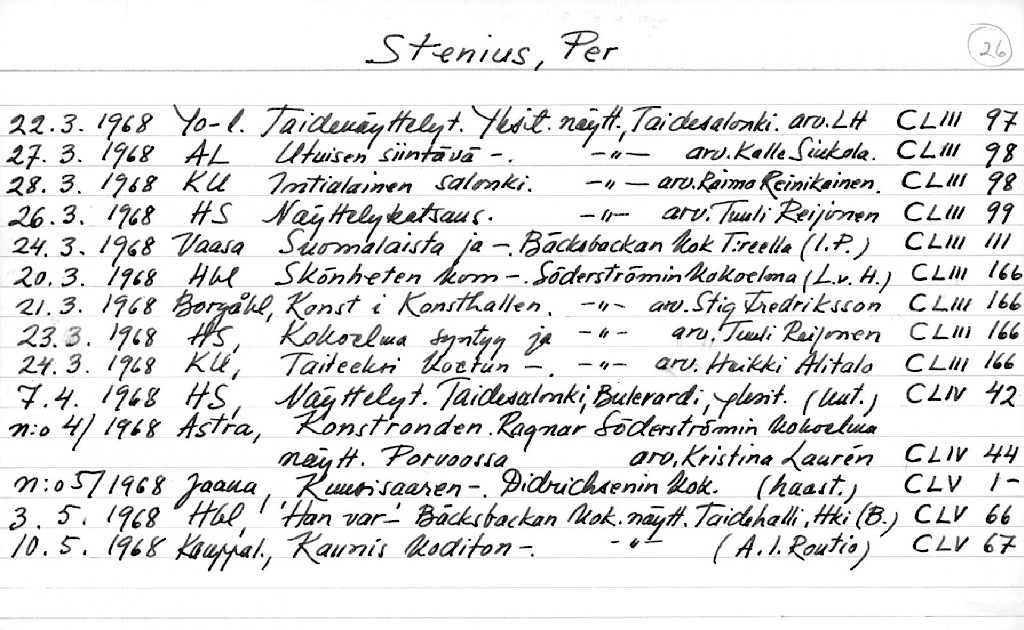 Stenius, Per 26
22.3. 1968 Yo-l. Taidenäyttelyt. Yksit. näytt., Taidesalonki. arv. LH CLIII 97
27. 3. 1968 AL Utuisen siintävä -. -"- arv. Kalle Siukola. CLIII 98
28. 3. 1968 KU Intialainen salonki. -"- arv. Raimo Reinikainen. CLIII 98
26. 3. 1968 HS Näyttelykatsaus. -"- arv. Tuuli Reijonen CLIII 99
24. 3. 1968 Vaasa Suomalaista ja -. Bäcksbackan kok T:reella (I.P.) CLIII 111
20. 3. 1968 Hbl Skönheten kom -. Söderströmin kokoelma (L.v.H.) CLIII 166
21. 3. 1968 Borgåbl, Konst i Konsthallen. -"- arv. Stig Fredriksson CLIII 166
23.3. 1968 HS, Kokoelma syntyy ja -"- arv. Tuuli Reijonen CLIII 166
24. 3. 1968 KU, Taiteeksi koetun -. -"- arv. Heikki Alitalo CLIII 166
7. 4. 1968 HS, Näyttelyt. Taidesalonki, Bulevardi, yksit. (kut.) CLIV 42
n:o 4/ 1968 Astra, Konstronden. Ragnar Söderströmin kokoelma
näytt. Porvoossa arv. Kristina Laurén CLIV 44
n:o 5/ 1968 Jaana, Kuusisaaren -. Didrichsenin kok. (haast.) CLV 1-
3. 5. 1968 Hbl, 'Han var -' Bäcksbackan kok. näytt. Taidehalli, Hki (B.) CLV 66
10. 5. 1968 Kauppal., Kaunis koditon -. -"- (A.I. Routio) CLV 67